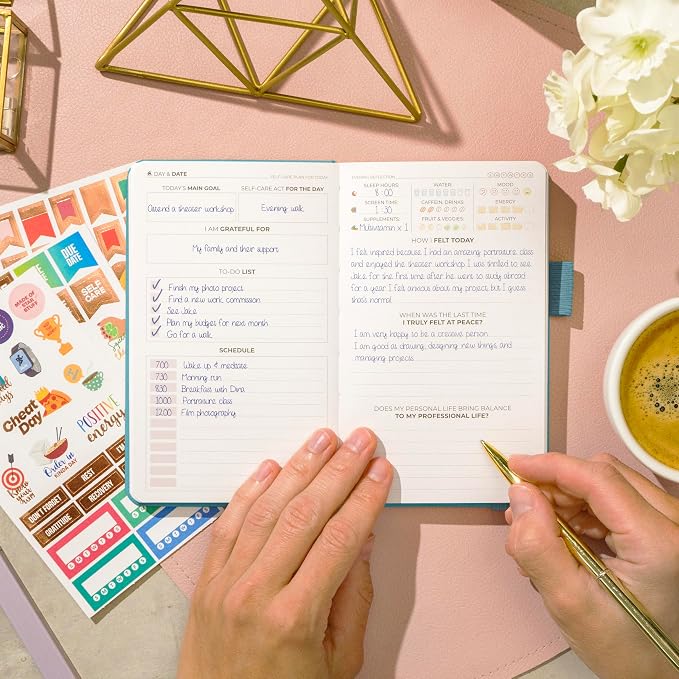 DAY & DATE
SELF-CARE PLAN FOR TODAY
TODAY'S MAIN GOAL
SELF-CARE ACT FOR THE DAY
Attend a theater workshop
Evening walk
I AM GRATEFUL FOR
My family and their support
TO-DO LIST
Finish my photo project
Find a new work commission
See Jake
Plan my budget for next month
Go for a walk
SCHEDULE
7:00 Wake up & meditate
7:30 Morning run
8:30 Breakfast with Dina
10:00 Portraiture class
12:00 Film photography
EVENING REFLECTION
SLEEP HOURS
8 : 00
SCREEN TIME
1 : 30
SUPPLEMENTS
Multivitamin x 1
WATER
CAFFEIN. DRINKS
FRUIT & VEGGIES
MOOD
ENERGY
ACTIVITY
HOW I FELT TODAY
I felt inspired because I had an amazing portraiture class
and enjoyed the theater workshop. I was thrilled to see
Jake for the first time after he went to study abroad
for a year. I felt anxious about my project but I guess
that's normal.
WHEN WAS THE LAST TIME
I TRULY FELT AT PEACE?
I am very happy to be a creative person.
I am good at drawing, designing new things, and
managing projects.
DOES MY PERSONAL LIFE BRING BALANCE
TO MY PROFESSIONAL LIFE?
DUE
DATE
SELF
CARE
MADE OF
STAR
STUFF
Cheat
Day
POSITIVE
energy
Order in
KINDA DAY
Know
your
DON'T FORGET
REST
RECOVERY
GRATITUDE
S M T W T F S
S M T W T F S
S M T W T F S